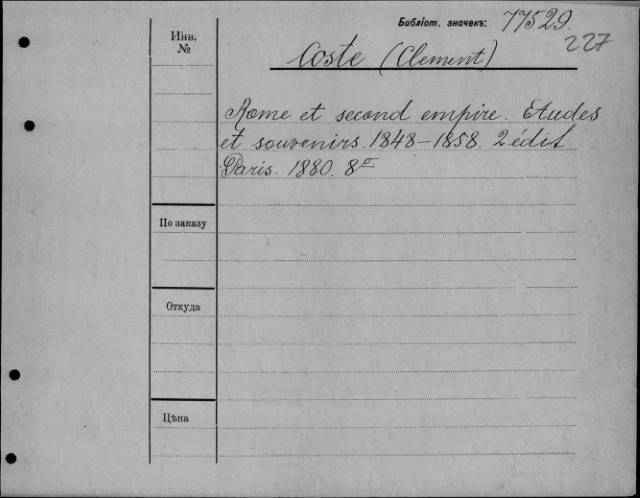 Библіот. значекъ: 77529.
227
Инв.
№
Coste (Clement)
Rome et second empire. Etudes
et souvenirs. 1848–1858. 2 édit
Paris. 1880. 8º
По заказу
Откуда
Цѣна